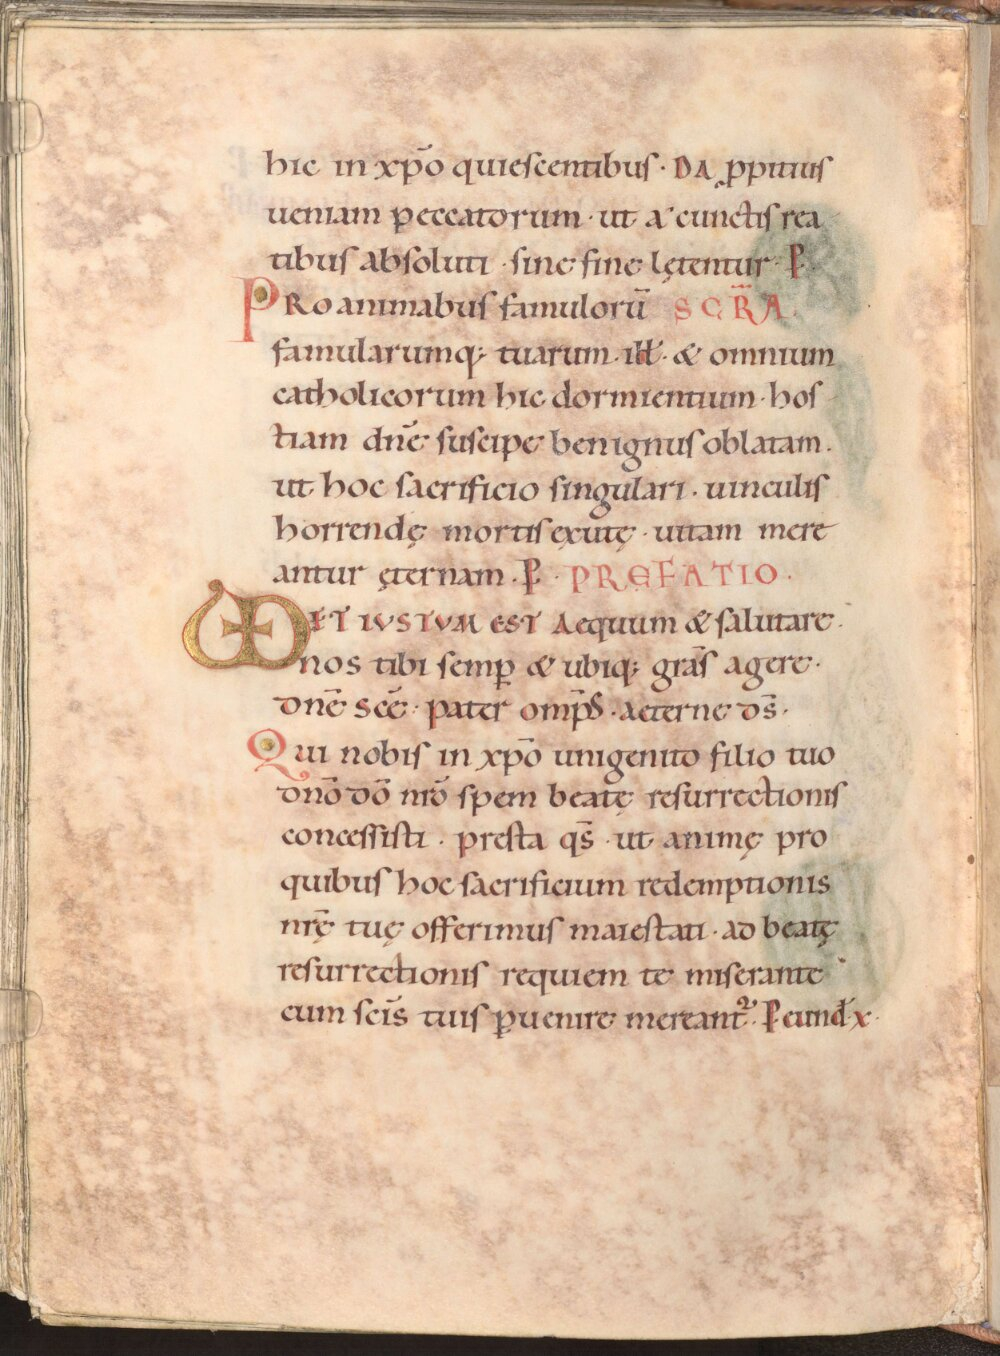 hic in xp̄o quiescentibus · DA ꝓpitius
ueniam peccatorum · ut a cunctis rea
tibus absoluti · sine fine lętentur · P̱ ·
PRo animabus famuloru̅ SCR̅A ·
famularumq; tuarum · iłł · & omnium
catholicorum hic dormientium · hos
tiam dn̄e suscipe benignus oblatam ·
ut hoc sacrificio singulari · uinculis
horrendę mortis exutę · uitam mere
antur ęternam · P̱ · PRĘFATIO ·
VD ET IVSTVM EST Aequum & salutare ·
nos tibi semꝑ & ubiq; gr̄as agere ·
dn̄e sc̄e · pater omp̄s · aeterne ds̄ ·
Qui nobis in xp̄o unigenito filio tuo
dn̄o dō nr̄o spem beatę resurrectionis
concessisti · presta qs̄ · ut animę pro
quibus hoc sacrificium redemptionis
nr̄ę tuę offerimus maiestati · ad beatę
resurrectionis requiem te miserante
cum sc̄is tuis ꝑuenire mereant᷑ · P̱ eund̄ x ·